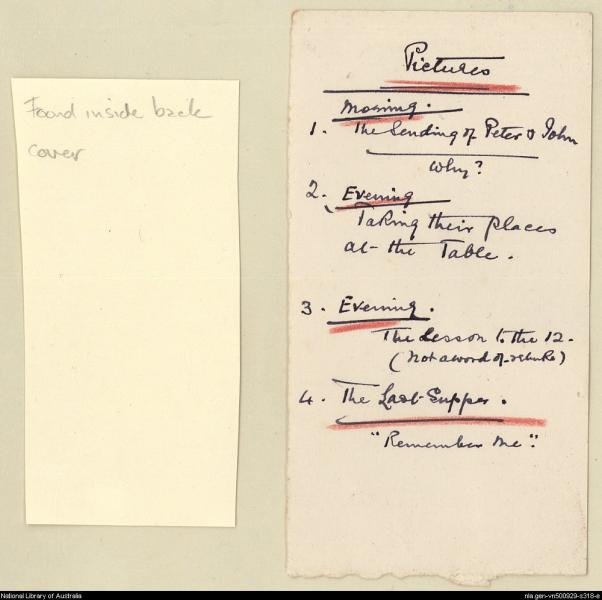 Found inside back
cover
Pictures
Morning.
1. The Sending of Peter & John
Why?
2. Evening
Taking their places
at the Table.
3. Evening.
The Lesson to the 12.
(Not a word of rebuke)
4. The Last Supper.
"Remember Me".
National Library of Australia
nla.gen-vn500929-s318-e